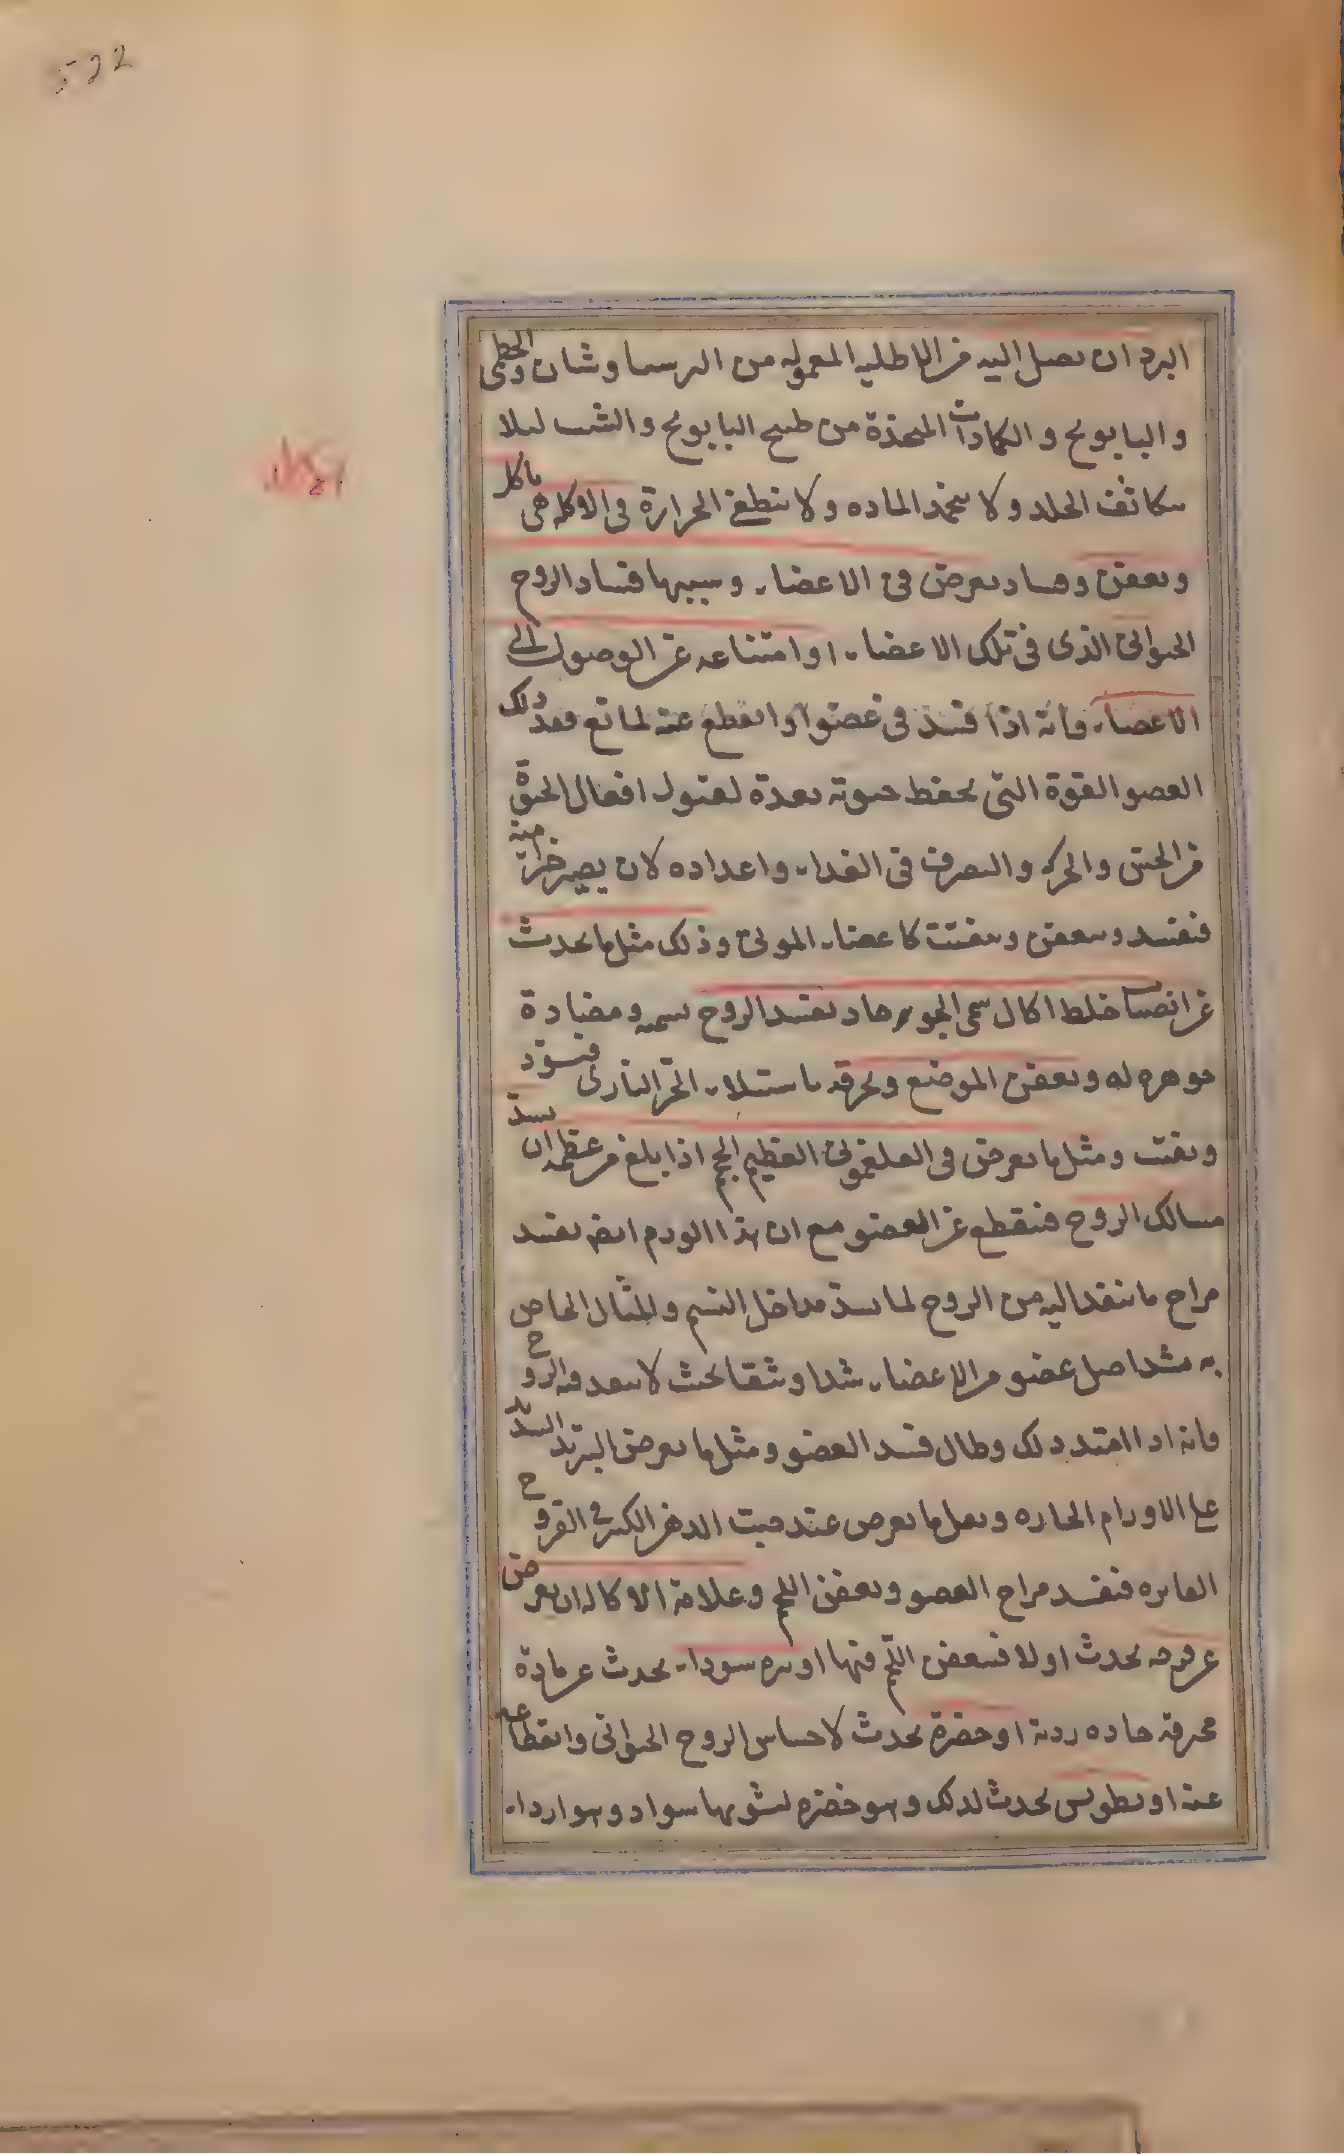 522
البرد ان يصل اليه من الاطلية المعموله من البرسياوشان والخطمى
والبابونج والكمادات المتخذة من طبيخ البابونج والشبت ليلا
يتكاثف الجلد ولا يتجمد الماده ولا ينطفئ الحرارة فى الاكله هى تاكل
الاكله
وتعفن وفساد يعرض فى الاعضاء وسببها فساد الروح
الحيوانى الذى فى تلك الاعضاء او امتناعه عن الوصول الى
الاعضاء فانه اذا فسد فى عضو او انقطع عنه لمانع فقد ذلك
العضو القوة التى تحفظ حيوته بعدة لقبول افعال الحيوة
من الحس والحركه والتصرف فى الغداء واعداده لان يصير جزء منه
فيفسد ويتعفن ويتفتت كاعضاء الموتى وذلك مثل ما يحدث
عن انصباب خلط اكال سمى الجوهر حاد يفسد الروح بسميه ومضادة
جوهره له ويعفن الموضع ويحرقه باستيلاء الحر النارى فيسود
ويفتت ومثل ما يعرض فى الفلغمونى العظيم الحجم اذا بلغ من عظمه ان يسد
مسالك الروح فينقطع عن العضو مع ان هذا الورم ايض يفسد
مزاج ما ينفد اليه من الروح لما يسد مداخل النسيم والمثال الخاص
به شد اصل عضو من الاعضاء شدا وثيقا بحيث لا ينفد فيه الروح
فانه اذا امتد ذلك وطال فسد العضو ومثل ما يعرض التبريد الشديد
على الاورام الحاره ومثل ما يعرض عند صب الدهن الكثير فى القروح
الغايره فيفسد مزاج العضو ويعفن اللحم وعلامة الاكاله ان يعرض
عن قرحه يحدث اولا فيتعفن اللحم فيها او بثره سوداء يحدث عن مادة
محرقه حاده رديه او خضرة يحدث لاحتباس الروح الحيوانى وانقطاعه
عنه او تطويس يحدث لذلك وهو خضره يشوبها سواد وهو اردا